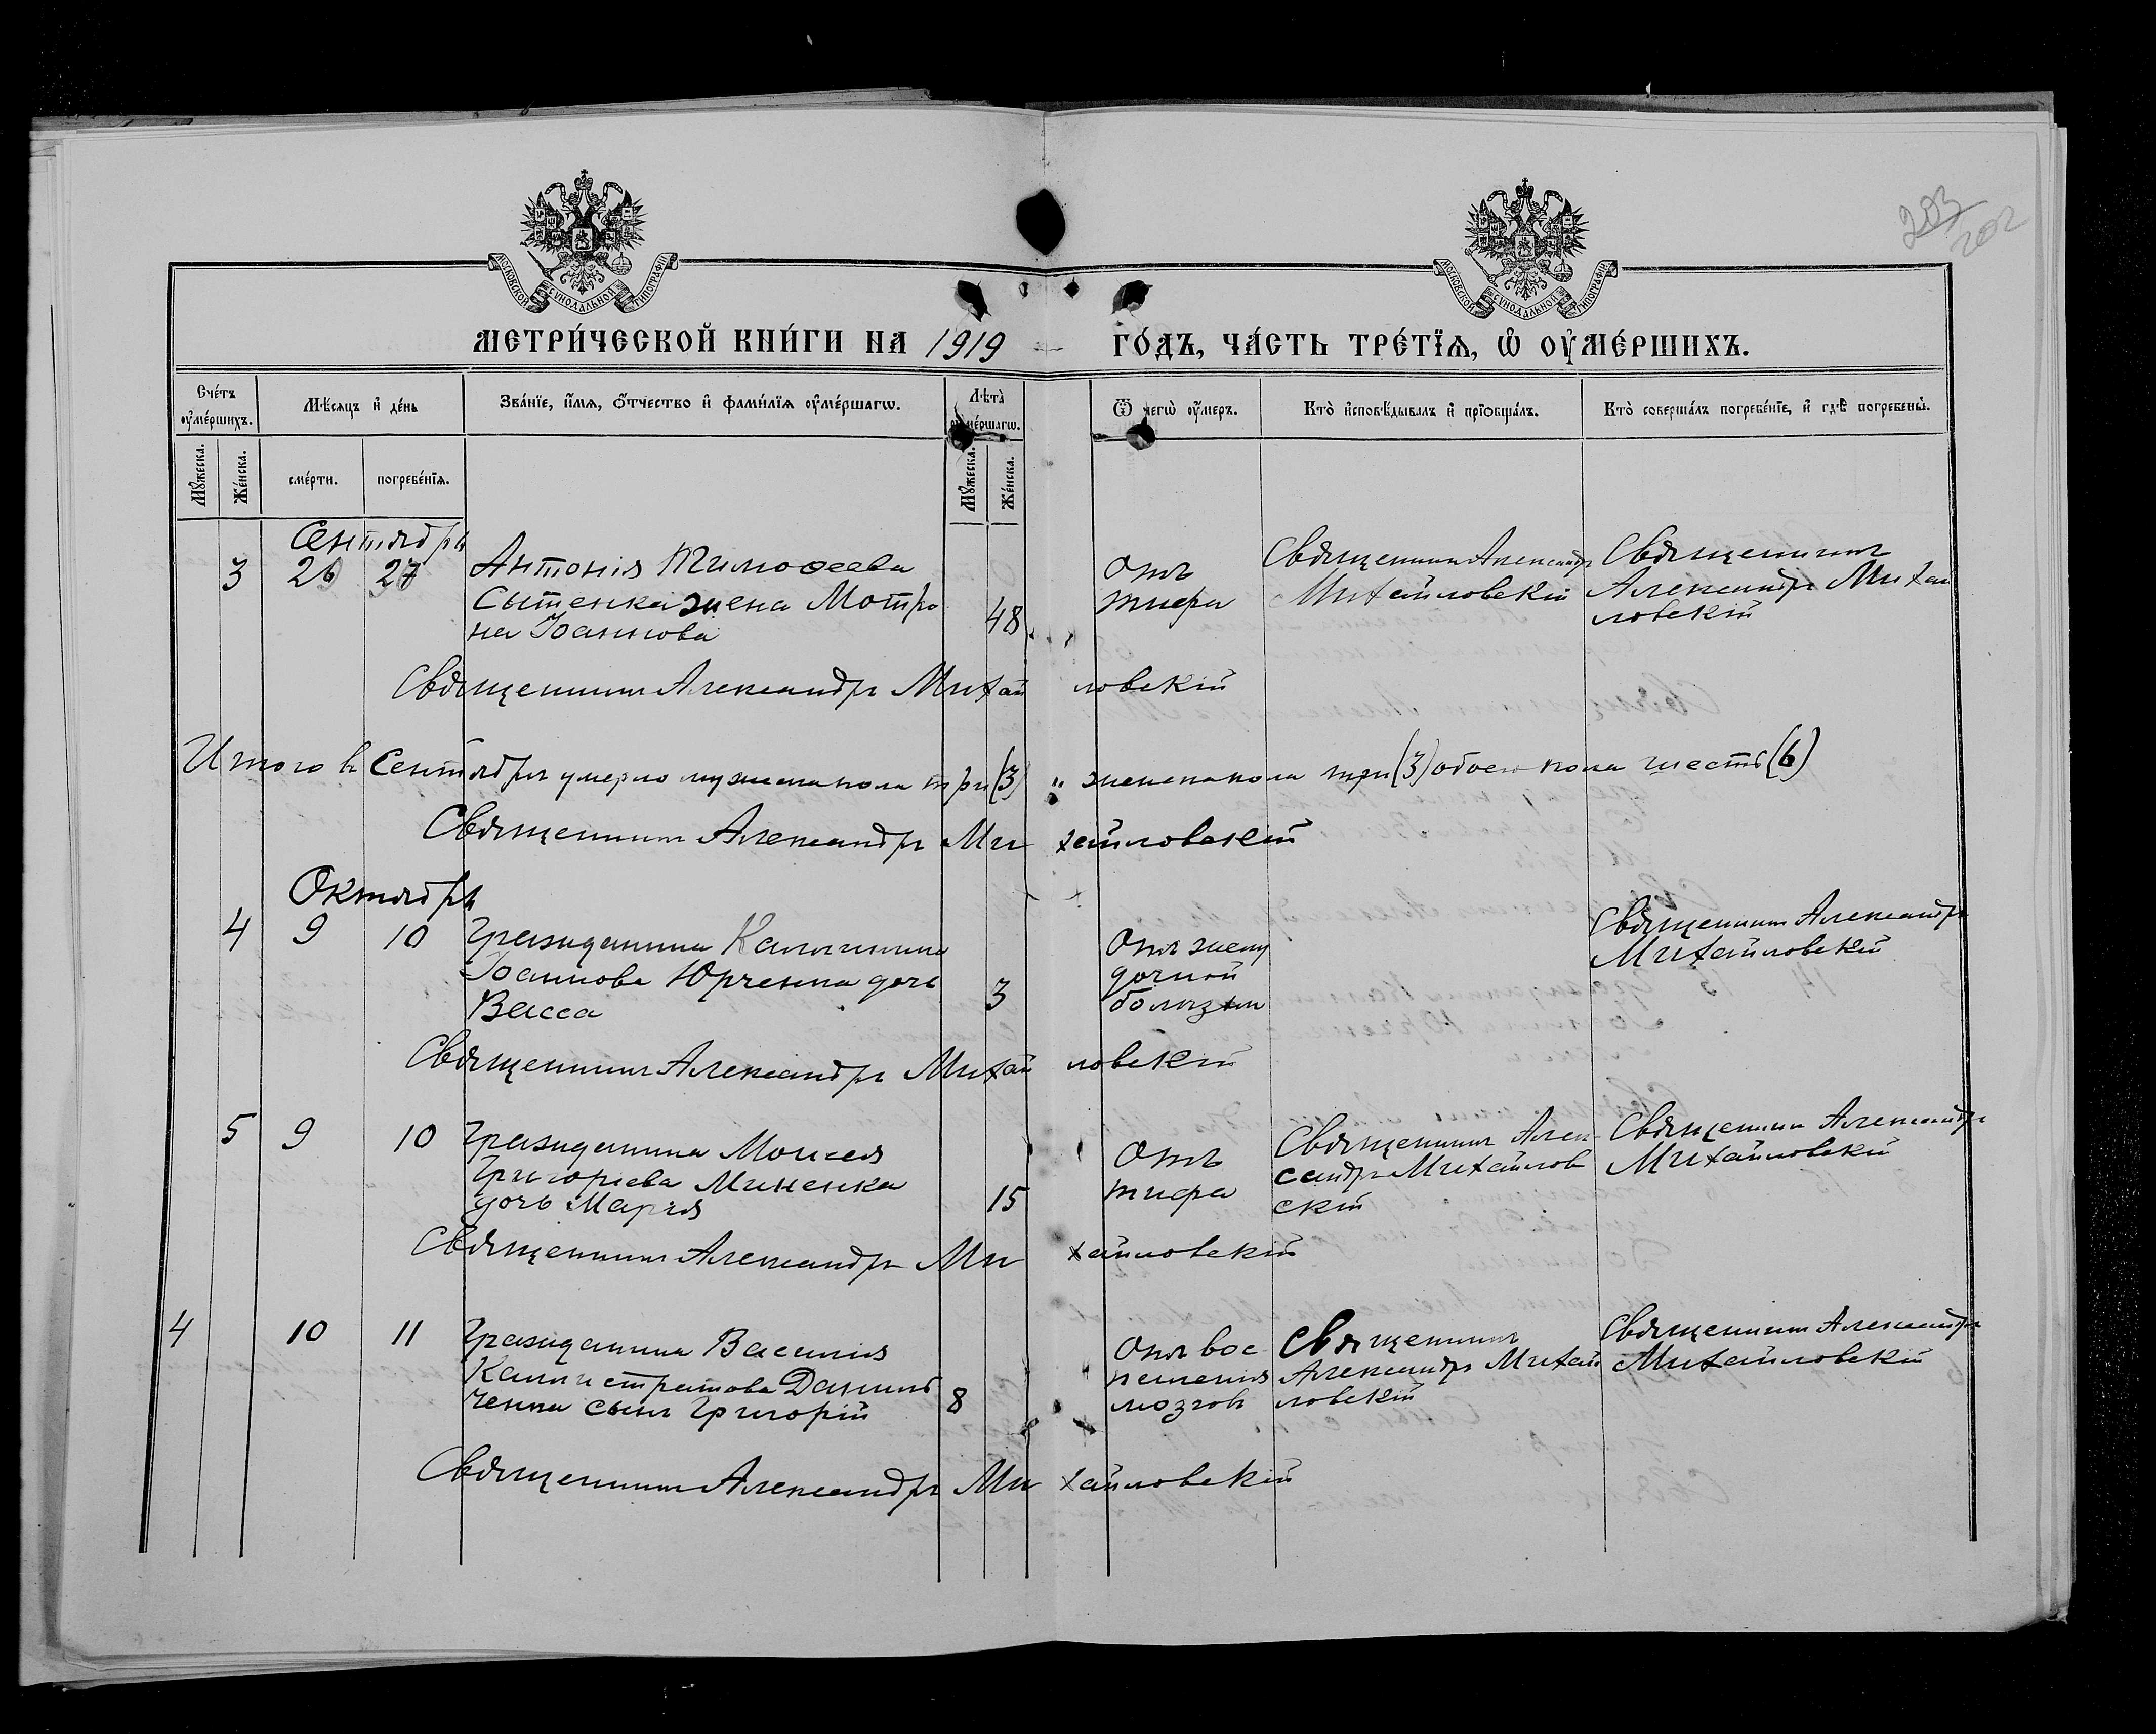 203
202
МОСКОВСКОЙ СѴНОДАЛЬНОЙ ТИПОГРАФІИ
МОСКОВСКОЙ СѴНОДАЛЬНОЙ ТИПОГРАФІИ
МЕТРИ́ЧЕСКОЙ КНИ́ГИ НА 1919 ГО́ДЪ, ЧА́СТЬ ТРЕ́ТЇѦ, Ѽ ОУ҆МЕ́РШИХЪ.
Сче́тъ оу҆ме́ршихъ.
Мѣ́сѧцъ и҆ де́нь
Зва́нїе, и҆́мѧ, ѻ҆́тчество и҆ фами́лїѧ оу҆ме́ршагѡ.
Лѣ́та оу҆ме́ршагѡ.
Ѿ чегѡ̀ оу҆́меръ.
Кто̀ и҆сповѣ́дывалъ и҆ прїѡбща́лъ.
Кто̀ соверша́лъ погребе́нїе, и҆ гдѣ̀ погребены̀.
Мꙋ́жеска.
Же́нска.
сме́рти.
погребе́нїѧ.
Мꙋ́жеска.
Же́нска.
Сентябрь
3 26 27 Антонія Тимоѳеева
Сытенка жена Мотро
на Іоаннова
48
Отъ
тифа
Священникъ Александръ
Михайловскій
Священникъ
Александръ Михай
ловскій
Священникъ Александръ Михайловскій
Итого въ Сентябрѣ умерло мужеска пола три (3) женска пола три (3) обоего пола шесть (6)
Священникъ Александръ Михайловскій
Октябрь
4 9 10 Гражданина Каллиника
Іоаннова Юрченка дочь
Васса
3
Отъ желу
дочной
болѣзни
Священникъ Александръ
Михайловскій
Священникъ Александръ Михайловскій
5 9 10 Гражданина Моисея
Григоріева Миненка
дочь Марія
15
Отъ
тифа
Священникъ Алек
сандръ Михайлов
скій
Священникъ Александръ
Михайловскій
Священникъ Александръ Михайловскій
4 10 11 Гражданина Василія
Каллистратова Даниль
ченка сынъ Григорій
8
Отъ вос
паленія
мозговъ
Священникъ
Александръ Михай
ловскій
Священникъ Александръ
Михайловскій
Священникъ Александръ Михайловскій